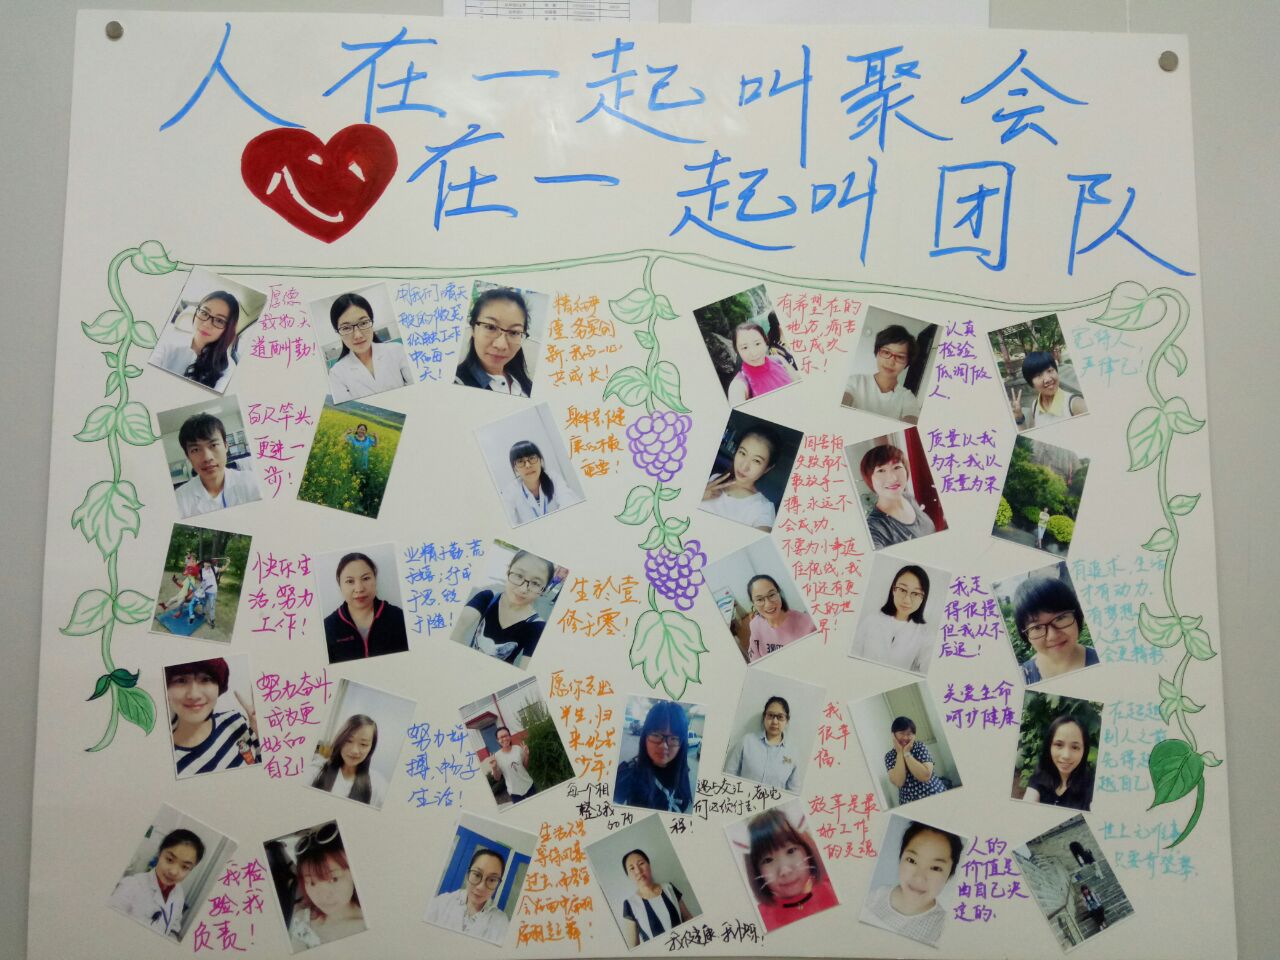 人在一起叫聚会
心在一起叫团队
厚德
载物天
道酬勤!
用我们春天
般的微笑
工作
中的每一
天!
精
务实创
新.我与心
共成长!
有希望在的
地方,痛苦
也成欢
乐!
认真
检验
低调做
人.
宽待人
严律己!
百尺竿头,
更进一
步!
身体
康的
重要!
因害怕
失败而不
敢放手一
搏,永远不
会成功.
质量以我
为本.我以
质量为荣
快乐生
活,努力
工作!
业精于勤.荒
于嬉;行成
于思.毁
于随!
生於壹,
修于零!
不要为小事遮
住视线,我
们还有更
大的世
界!
我走
得很慢
但我从不
后退!
有追求,生活
才有动力.
有梦想,
人生才
会更精彩.
努力奋斗,
成为更
好的
自己!
努力拼
搏,畅享
生活!
愿你出走
半生,归
来仍是
少年!
每一个相遇与交汇,都
我很幸
福.
关爱生命
呵护健康
在超越
别人之前
先得超
越自己
我检
验,我
负责!
生活不是
等待风暴
过去,而是学
会在雨中翩
翩起舞!
我健康.我快乐!
效率是最
好工作
的灵魂
人的
价值是
由自己决
定的.
世上无难事
只要肯登攀.